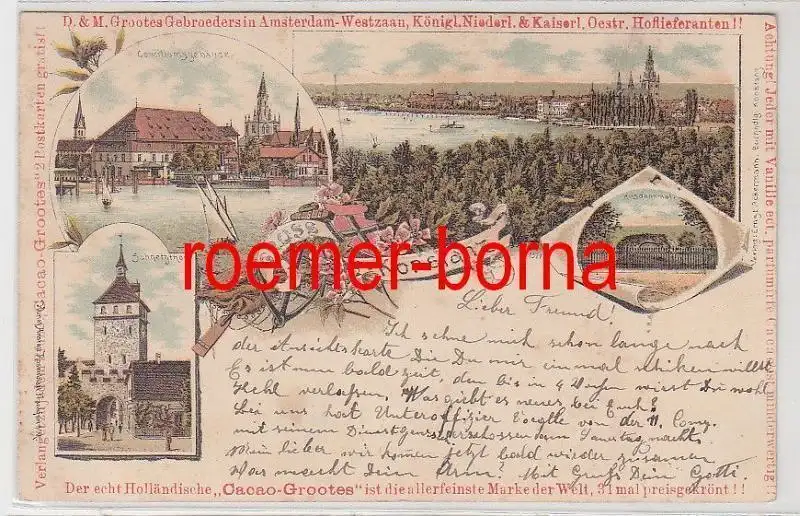 D. & M. Grootes Gebroeders in Amsterdam-Westzaan, Königl. Niederl. & Kaiserl. Oestr. Hoflieferanten!!
Conciliumsgebäude.
roemer-borna
Lieber Freund!
Ich sehne mich schon lange nach
der Ansichtskarte Die Du mir einmal schiken willst
Es ist nun bald Zeit, den bis in 4 Wochen wirst Du wohl
Kehl verlassen. Was gibt es neues bei Euch?
Bei uns hat Unteroffizier von der 11. Comp.
mit seinem Dienstgewehr erschossen am Samstag nacht,
Mein lieber wir komen jetzt bald wieder zusamen
Was macht Dein Arm? Mit Gruß Dein
Der echt Holländische „Cacao-Grootes" ist die allerfeinste Marke der Welt, 31 mal preisgekrönt!!
Verlanget zu jeden "Cacao-Grootes" 2 Postkarten gratis!
Achtung! Jeder mit Vanille ect. parfümirte Cacao ist minderwertig!
Verlag Ernst Ackermann, Konstanz